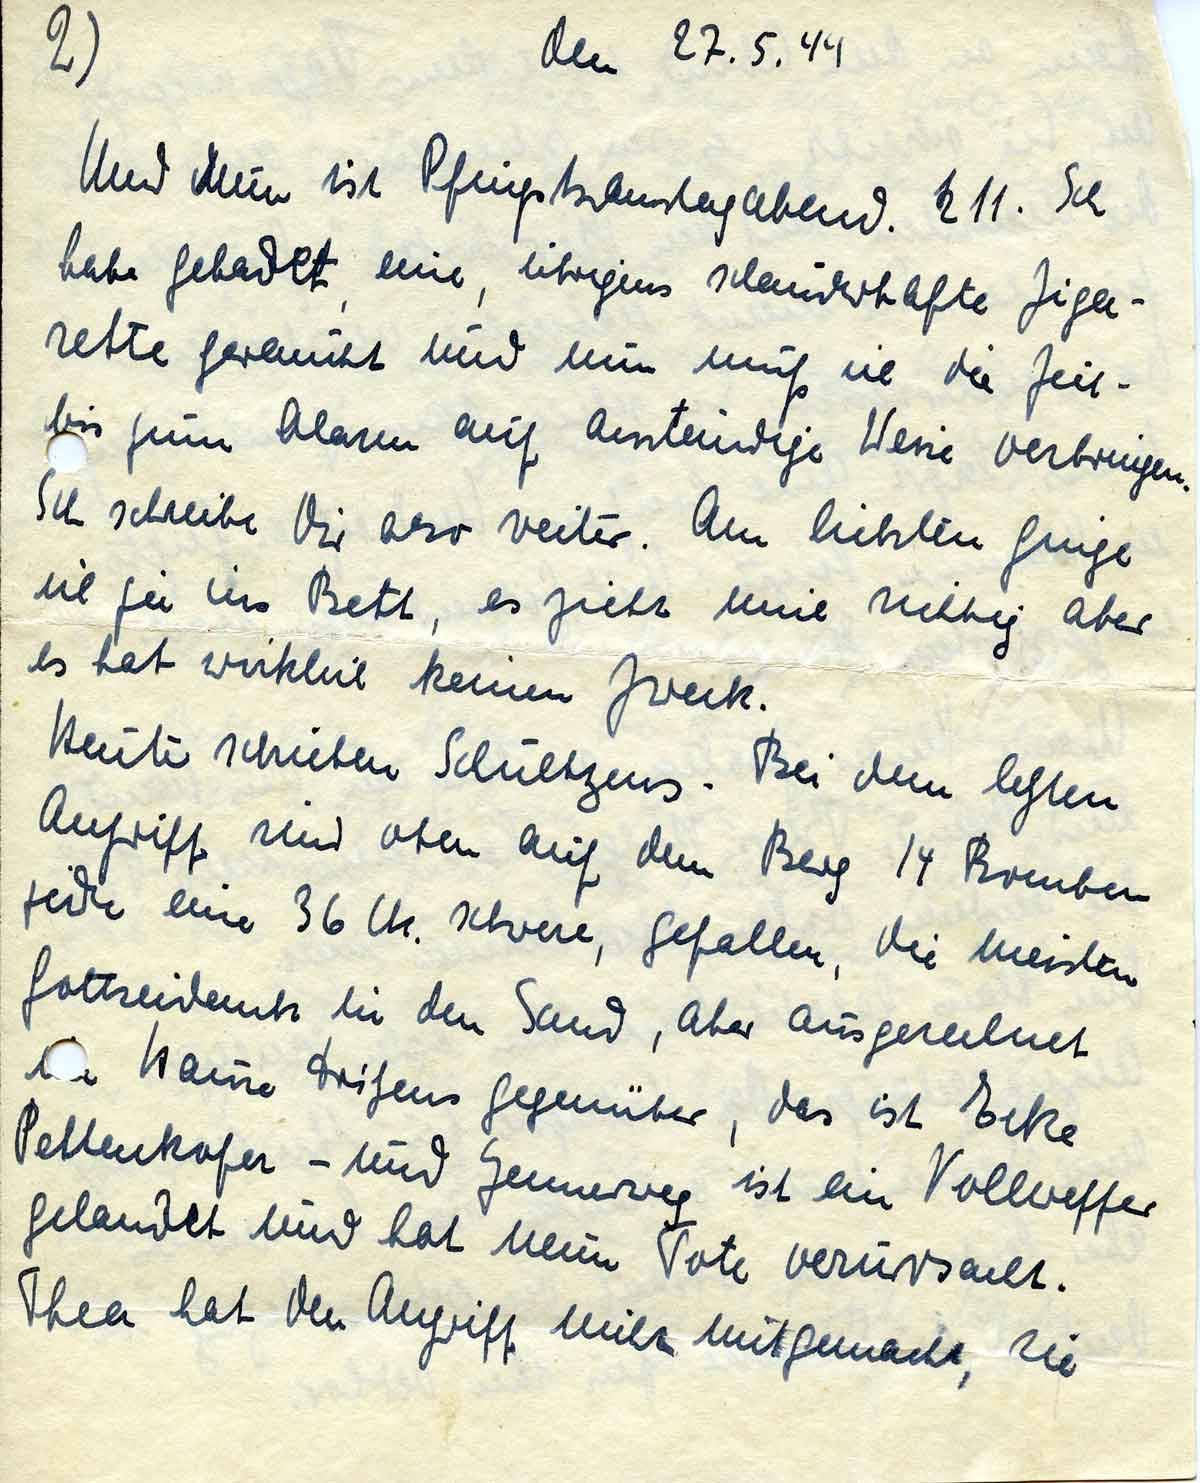 2) den 27.5.44
Und nun ist Pfingstsamstagabend. ½ 11. Ich
habe gebadet, eine, übrigens schauderhafte Ziga-
rette geraucht und nun muß ich die Zeit
bis zum Alarm auf anständige Weise verbringen.
Ich schreibe Dir also weiter. Am liebsten ginge
ich ja ins Bett, es zieht mich richtig aber
es hat wirklich keinen Zweck.
Heute schrieben Schultzens. Bei dem letzten
Angriff sind oben auf dem Berg 14 Bomben
jede eine 36 Ctr. schwere, gefallen, die meisten
Gottseidank in den Sand, aber ausgerechnet
Hause gegenüber, das ist Ecke
Pettenkofer - und Jennerweg ist ein Volltreffer
gelandet und hat neun Tote verursacht.
Thea hat den Angriff nicht mitgemacht, sie